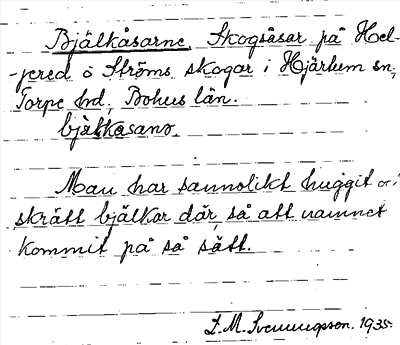 Bjälkåsarne. Skogsåsar på Hel-
-jered o Ströms skogar i Hjärtum sn,
Torpe hd, Bohus län.
bjälkasano.
Man har sannolikt huggit o.
skrätt bjälkar där, så att namnet
kommit på så sätt.
L.M. Svenungsson. 1935.